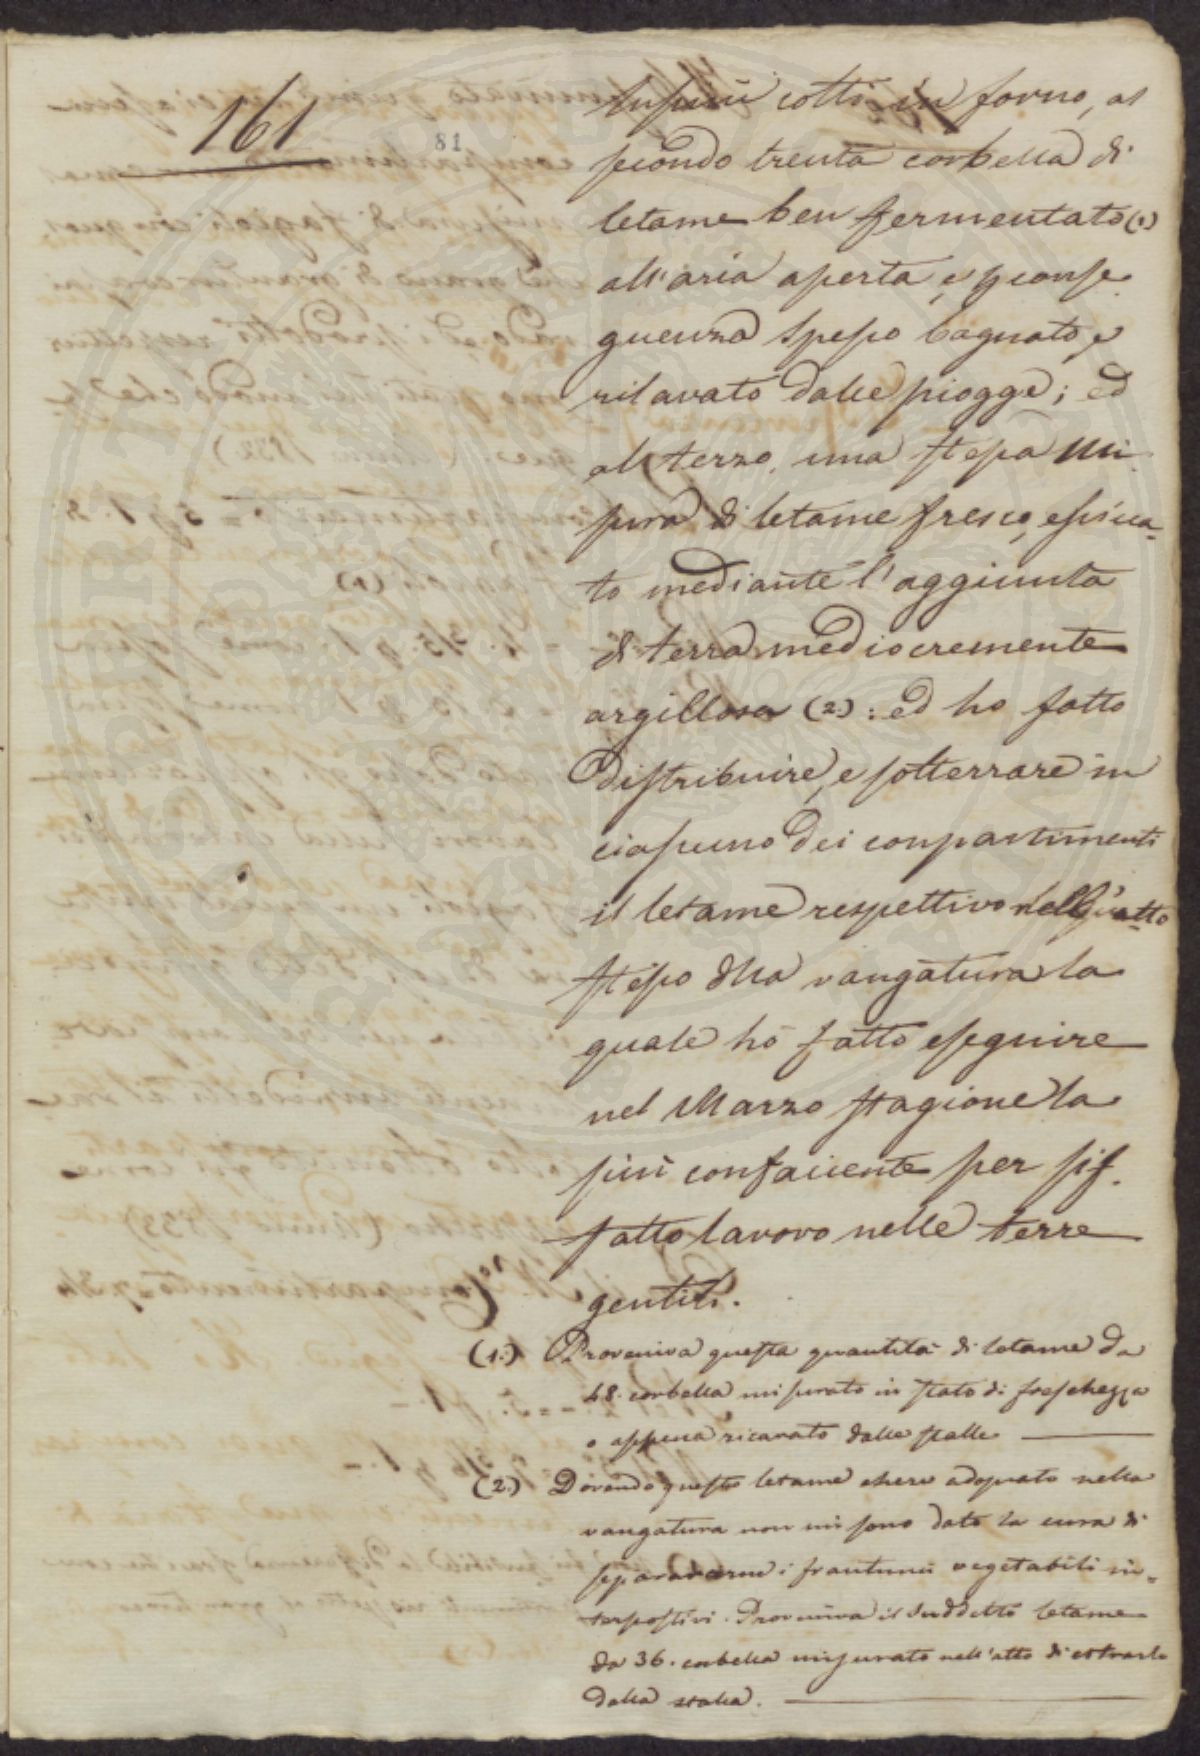 161
81
lupini cotti in forno, al
secondo trenta corbella di
letame ben fermentato (1)
all'aria aperta, e p conse
guenza spesso bagnato, e
rilavato dalle piogge; ed
al terzo, una stessa mi
sura di letame fresco, essicca=
to mediante l'aggiunta
di terra mediocremente
argillosa (2.): ed ho fatto
distribuire, e sotterrare in
ciascuno dei conpartimenti
il letame respettivo nell'atto
stesso dlla vangatura la
quale ho fatto eseguire
nel Marzo stagione la
più confaciente per sif.
fatto lavoro nelle terre
gentili.
(1.) Proveniva questa quantità di letame da
48. corbella misurato in stato di freschezza
o appena ricavato dalle stalle
(2.) Dovendo questo letame essere adoprato nella
vangatura non mi sono dato la cura di
separarne i frantumi vegetabili in=
terpostivi. Proveniva il suddetto letame
da 36. corbella misurato nell'atto di estrarlo
dalla stalla.